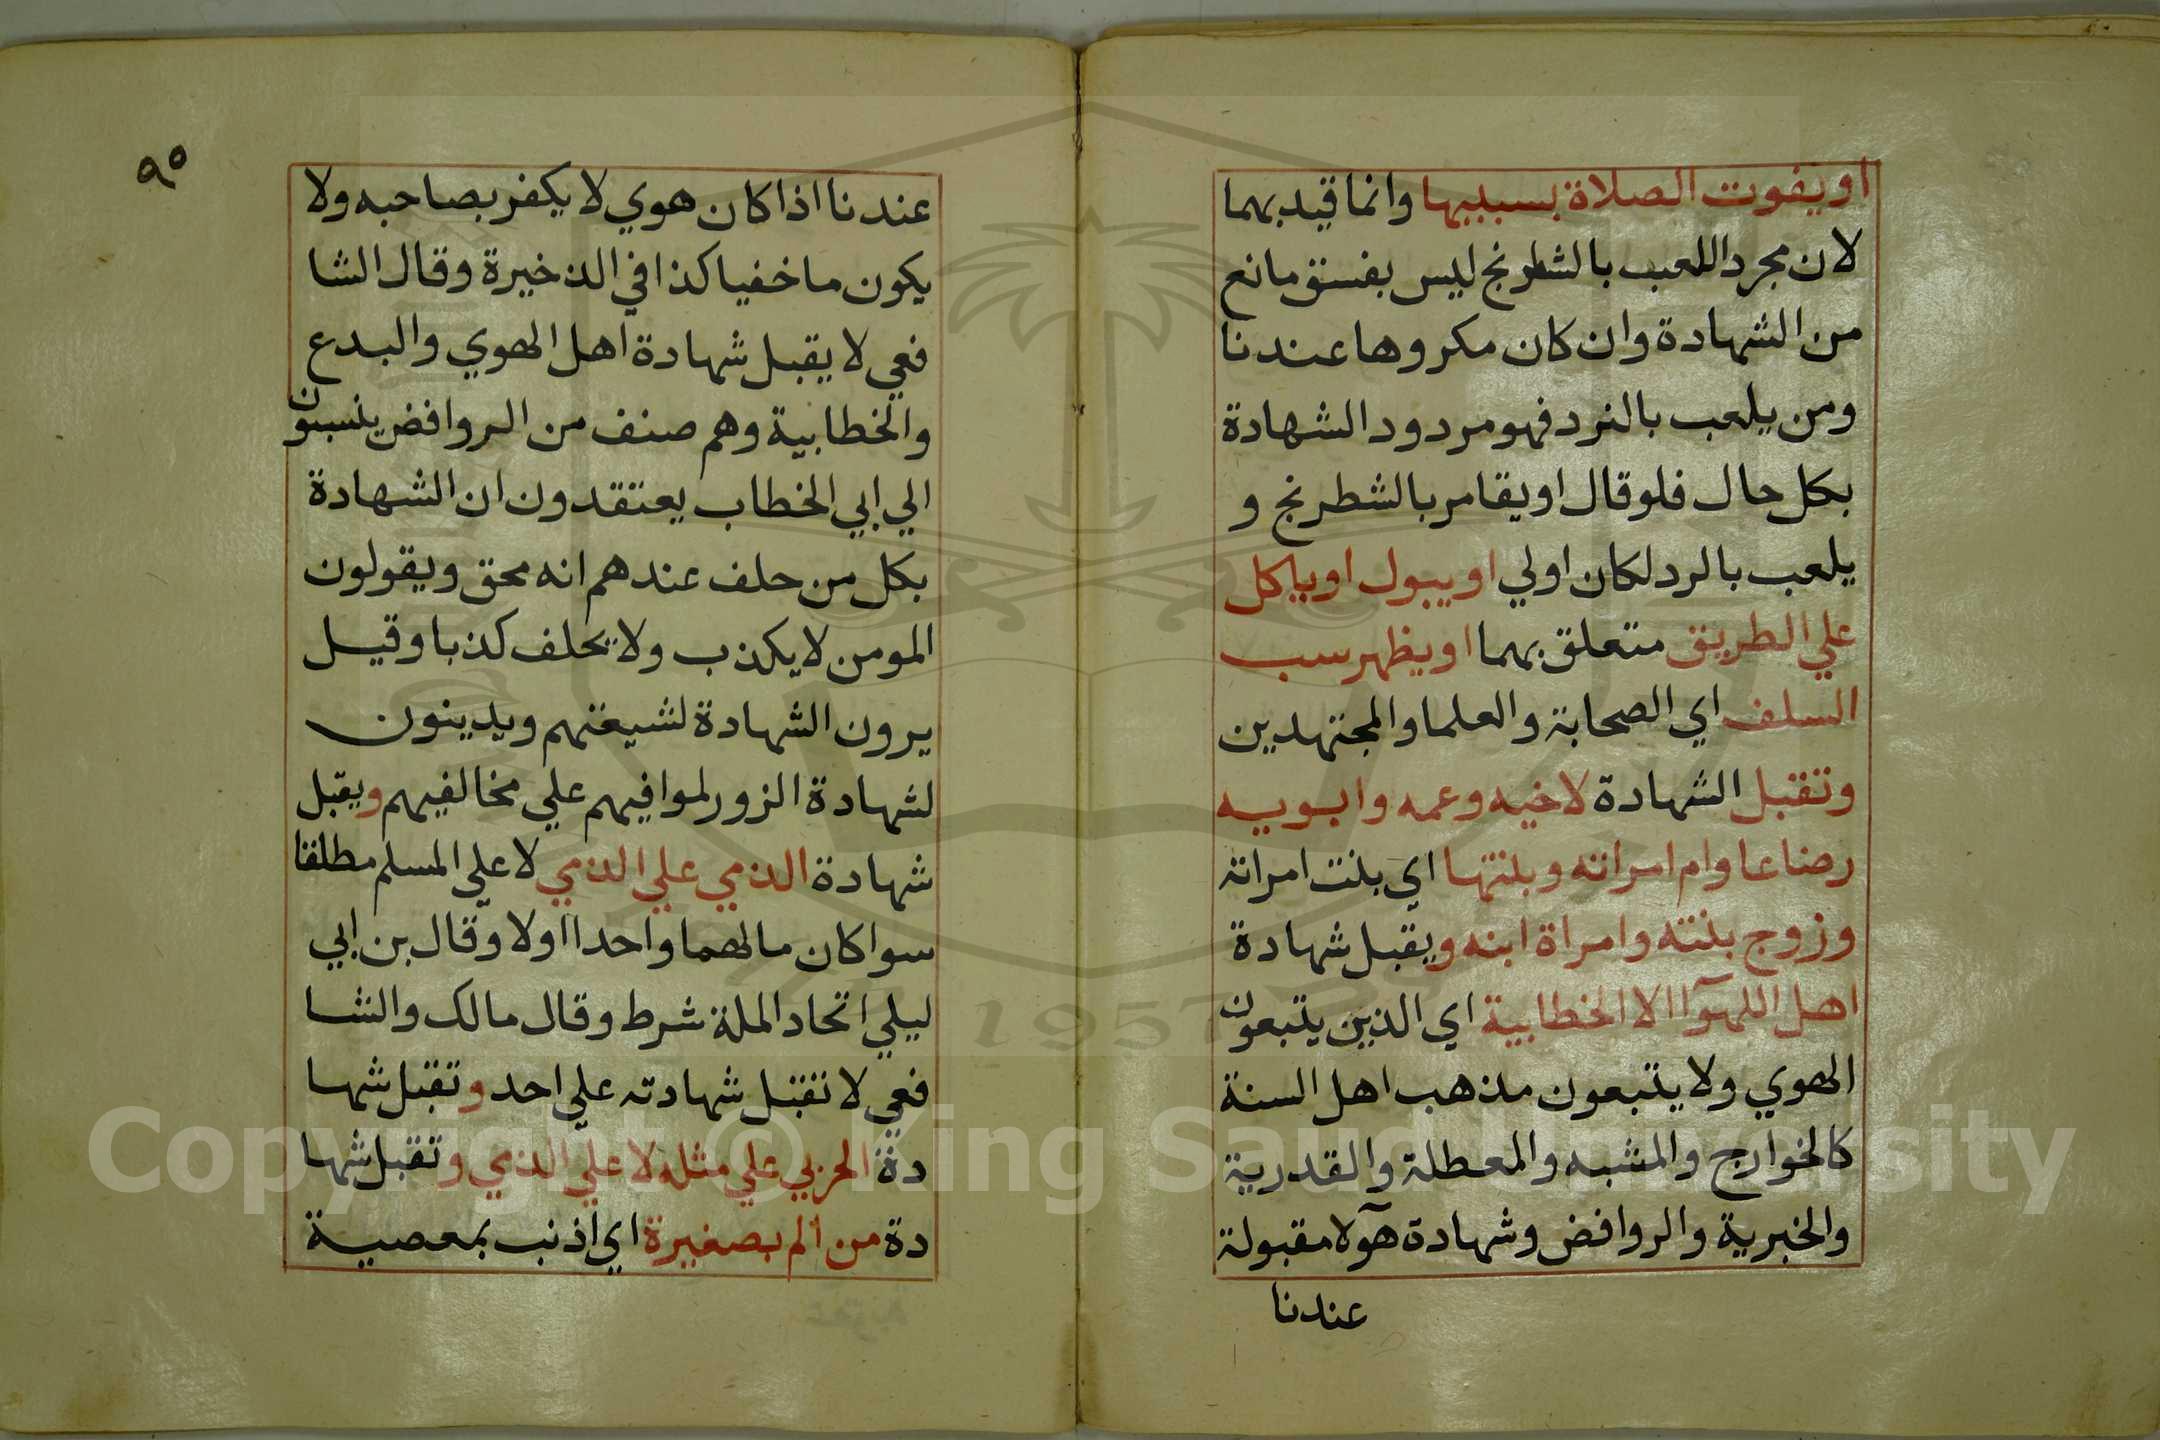 او يفوت الصلاة بسببها وانما قيد بهما
لان مجرد اللعب بالشطرنج ليس بفسق مانع
من الشهادة وان كان مكروها عندنا
ومن يلعب بالنرد فهو مردود الشهادة
بكل حال فلو قال او يقامر بالشطرنج و
يلعب بالرد لكان اولي او يبول او ياكل
علي الطريق متعلق بهما او يظهر سب
السلف اي الصحابة والعلما والمجتهدين
وتقبل الشهادة لاخيه وعمه وابويه
رضاعا وام امراته وبنتها اي بنت امراته
وزوج بنته وامراة ابنه ويقبل شهادة
اهل اللهوآ الا الخطابية اي الذين يتبعون
الهوي ولا يتبعون مذهب اهل السنة
كالخوارج والمشبه والمعطلة والقدرية
والخبرية والروافض وشهادة هآولا مقبولة
عندنا
٩٥
عندنا اذا كان هوي لا يكفر بصاحبه ولا
يكون ماخفيا كذا في الذخيرة وقال الشا
فعي لا يقبل شهادة اهل الهوي والبدع
والخطابية وهم صنف من الروافض ينسبون
الي ابي الخطاب يعتقدون ان الشهادة
بكل من حلف عندهم انه محق ويقولون
المومن لا يكذب ولا يحلف كذبا وقيل
يرون الشهادة لشيعتهم ويدينون
لشهادة الزور لموافيهم علي مخالفيهم ويقبل
شهادة الذمي علي الذمي لا علي المسلم مطلقا
سوا كان مالهما واحدا اولا وقال بن ابي
ليلي اتحاد الملة شرط وقال مالك والشا
فعي لا تقبل شهادته علي احد وتقبل شها
دة الحربي علي مثله لا علي الذمي وتقبل شها
دة من الم بصغيرة اي اذنب بمعصية
Copyright © King Saud University
1957